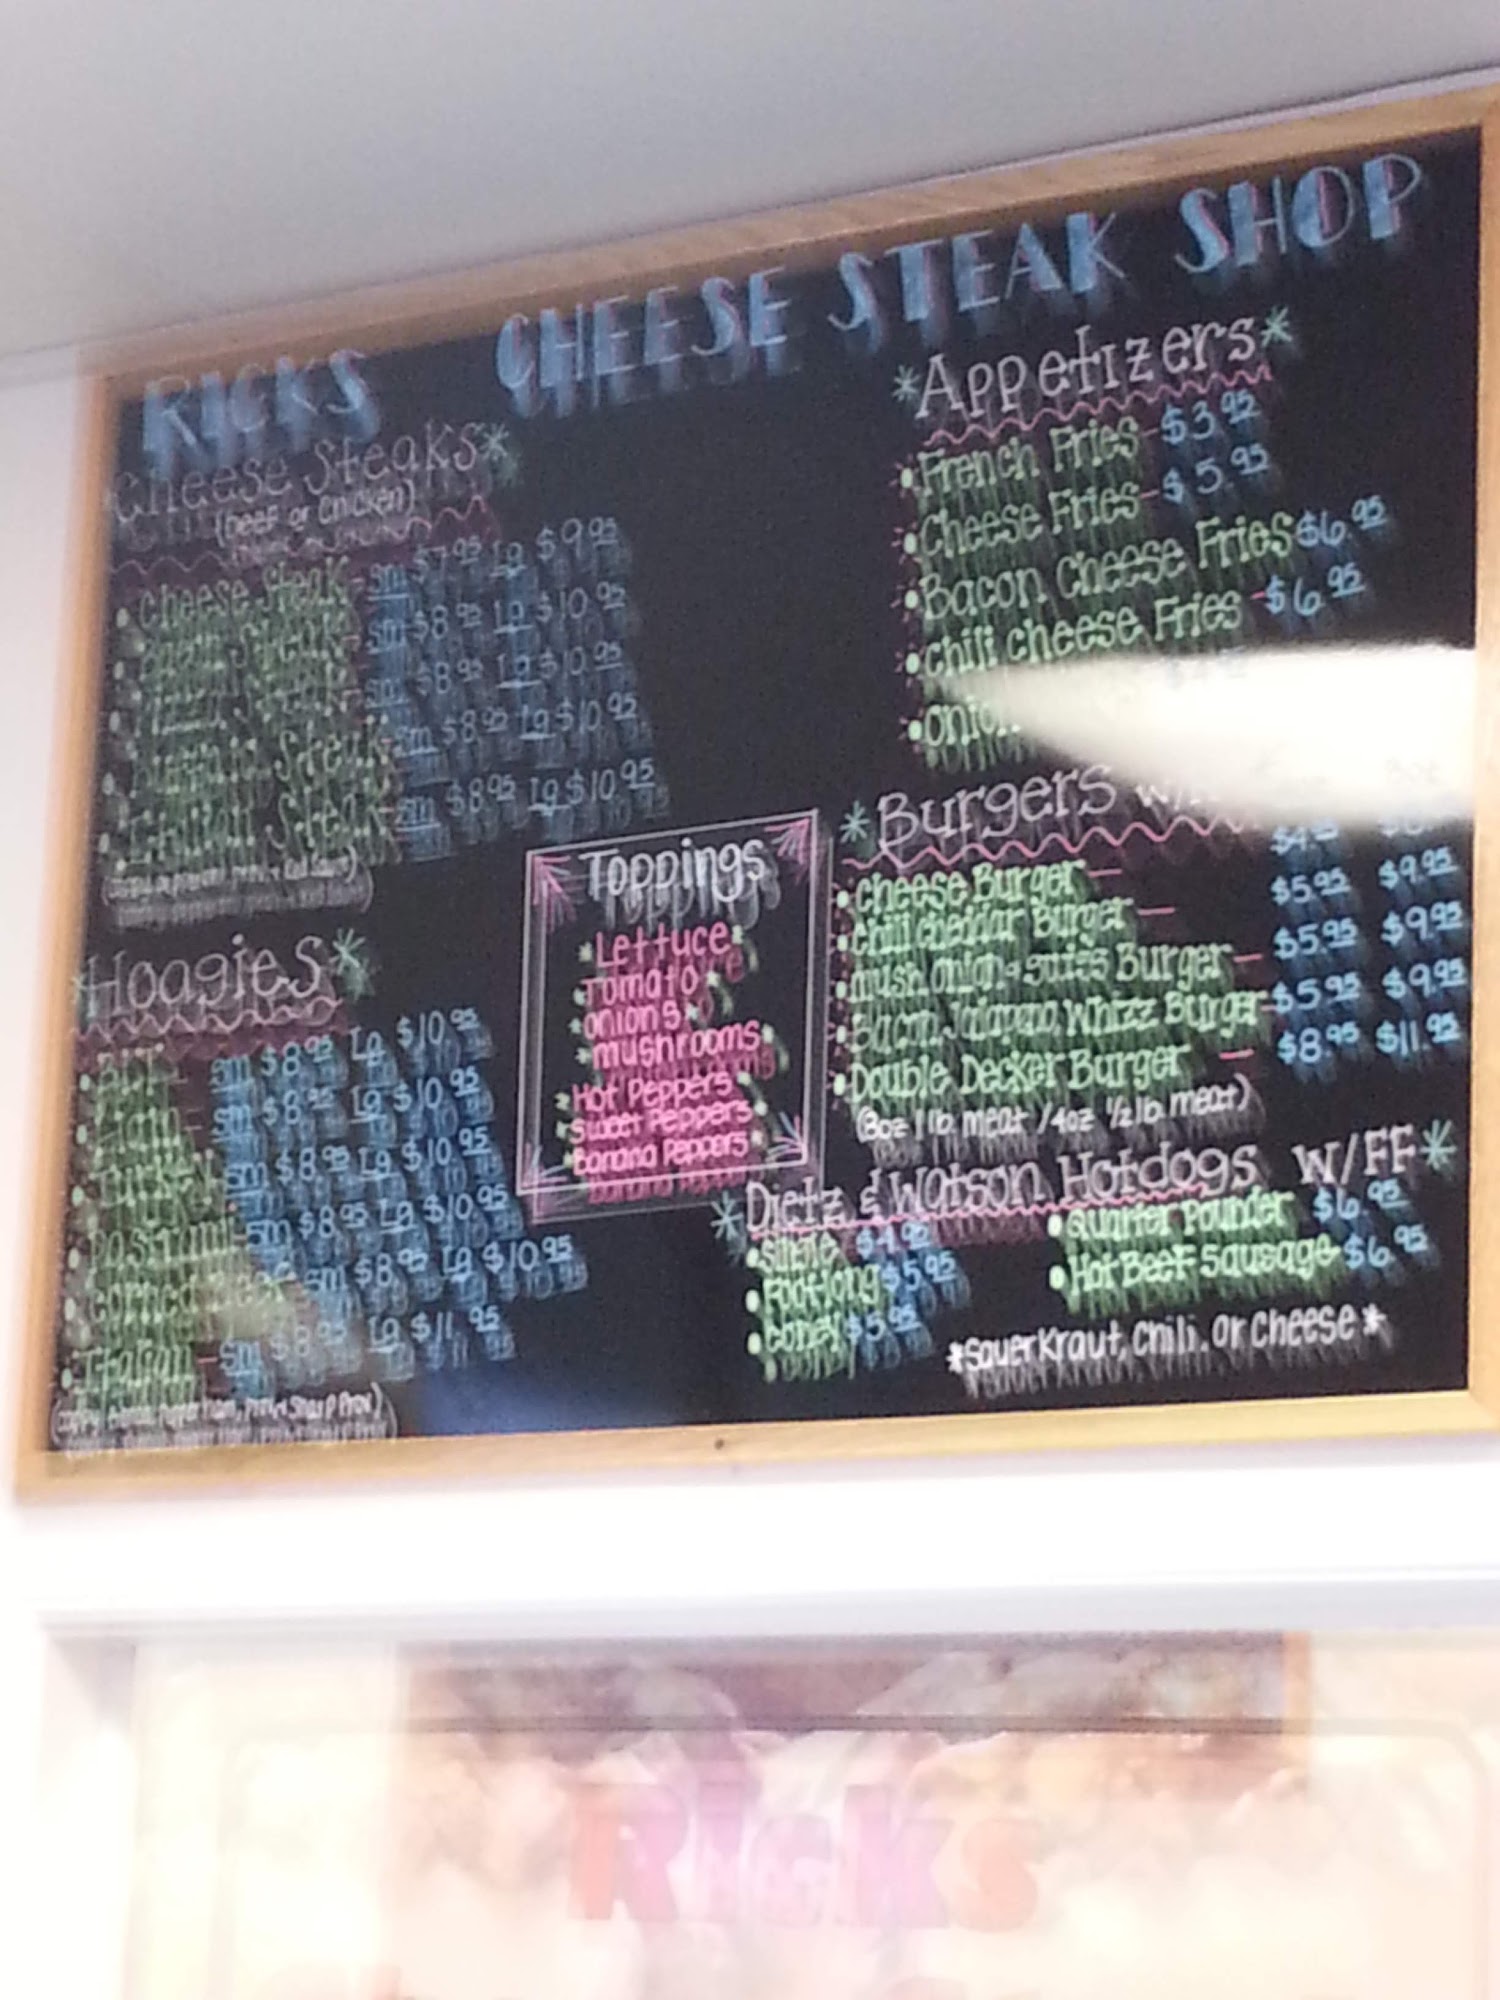 RICKS CHEESE STEAK SHOP
Cheese Steaks*
(beef or chicken)
• Cheese Steak - sm $7.95 Lg $9.95
• Steak - sm $8.95 Lg $10.95
• Steak - sm $8.95 Lg $10.95
• Steak - sm $8.95 Lg $10.95
• Italian Steak - sm $8.95 Lg $10.95
*Hoagies*
• BLT - sm $8.95 Lg $10.95
• Ham - sm $8.95 Lg $10.95
• Turkey sm $8.95 Lg $10.95
• Pastrami - sm $8.95 Lg $10.95
• Corned Beef sm $8.95 Lg $10.95
• Italian - sm $8.95 Lg $11.95
Toppings
*Lettuce*
*Tomato*
*onions*
*mushrooms*
*Hot Peppers*
*Sweet Peppers*
*Banana Peppers*
*Appetizers*
• French Fries - $3.95
• Cheese Fries - $5.95
• Bacon Cheese Fries $6.95
• Chili cheese Fries - $6.95
• onion
*Burgers
• Cheese Burger -
• Chili cheddar Burger - $5.95 $9.95
• mush onion & swiss Burger - $5.95 $9.95
• Bacon Jalapeno Whizz Burger - $5.95 $9.95
• Double Decker Burger - $8.95 $11.95
(8oz 1lb meat / 4oz 1/2 lb. meat)
*Dietz & Watson Hotdogs W/FF*
$4.95
• Footlong $5.95
• Coney $5.95
• Quarter Pounder $6.95
• Hot Beef Sausage $6.95
*Sauerkraut, Chili, or Cheese*
Ricks